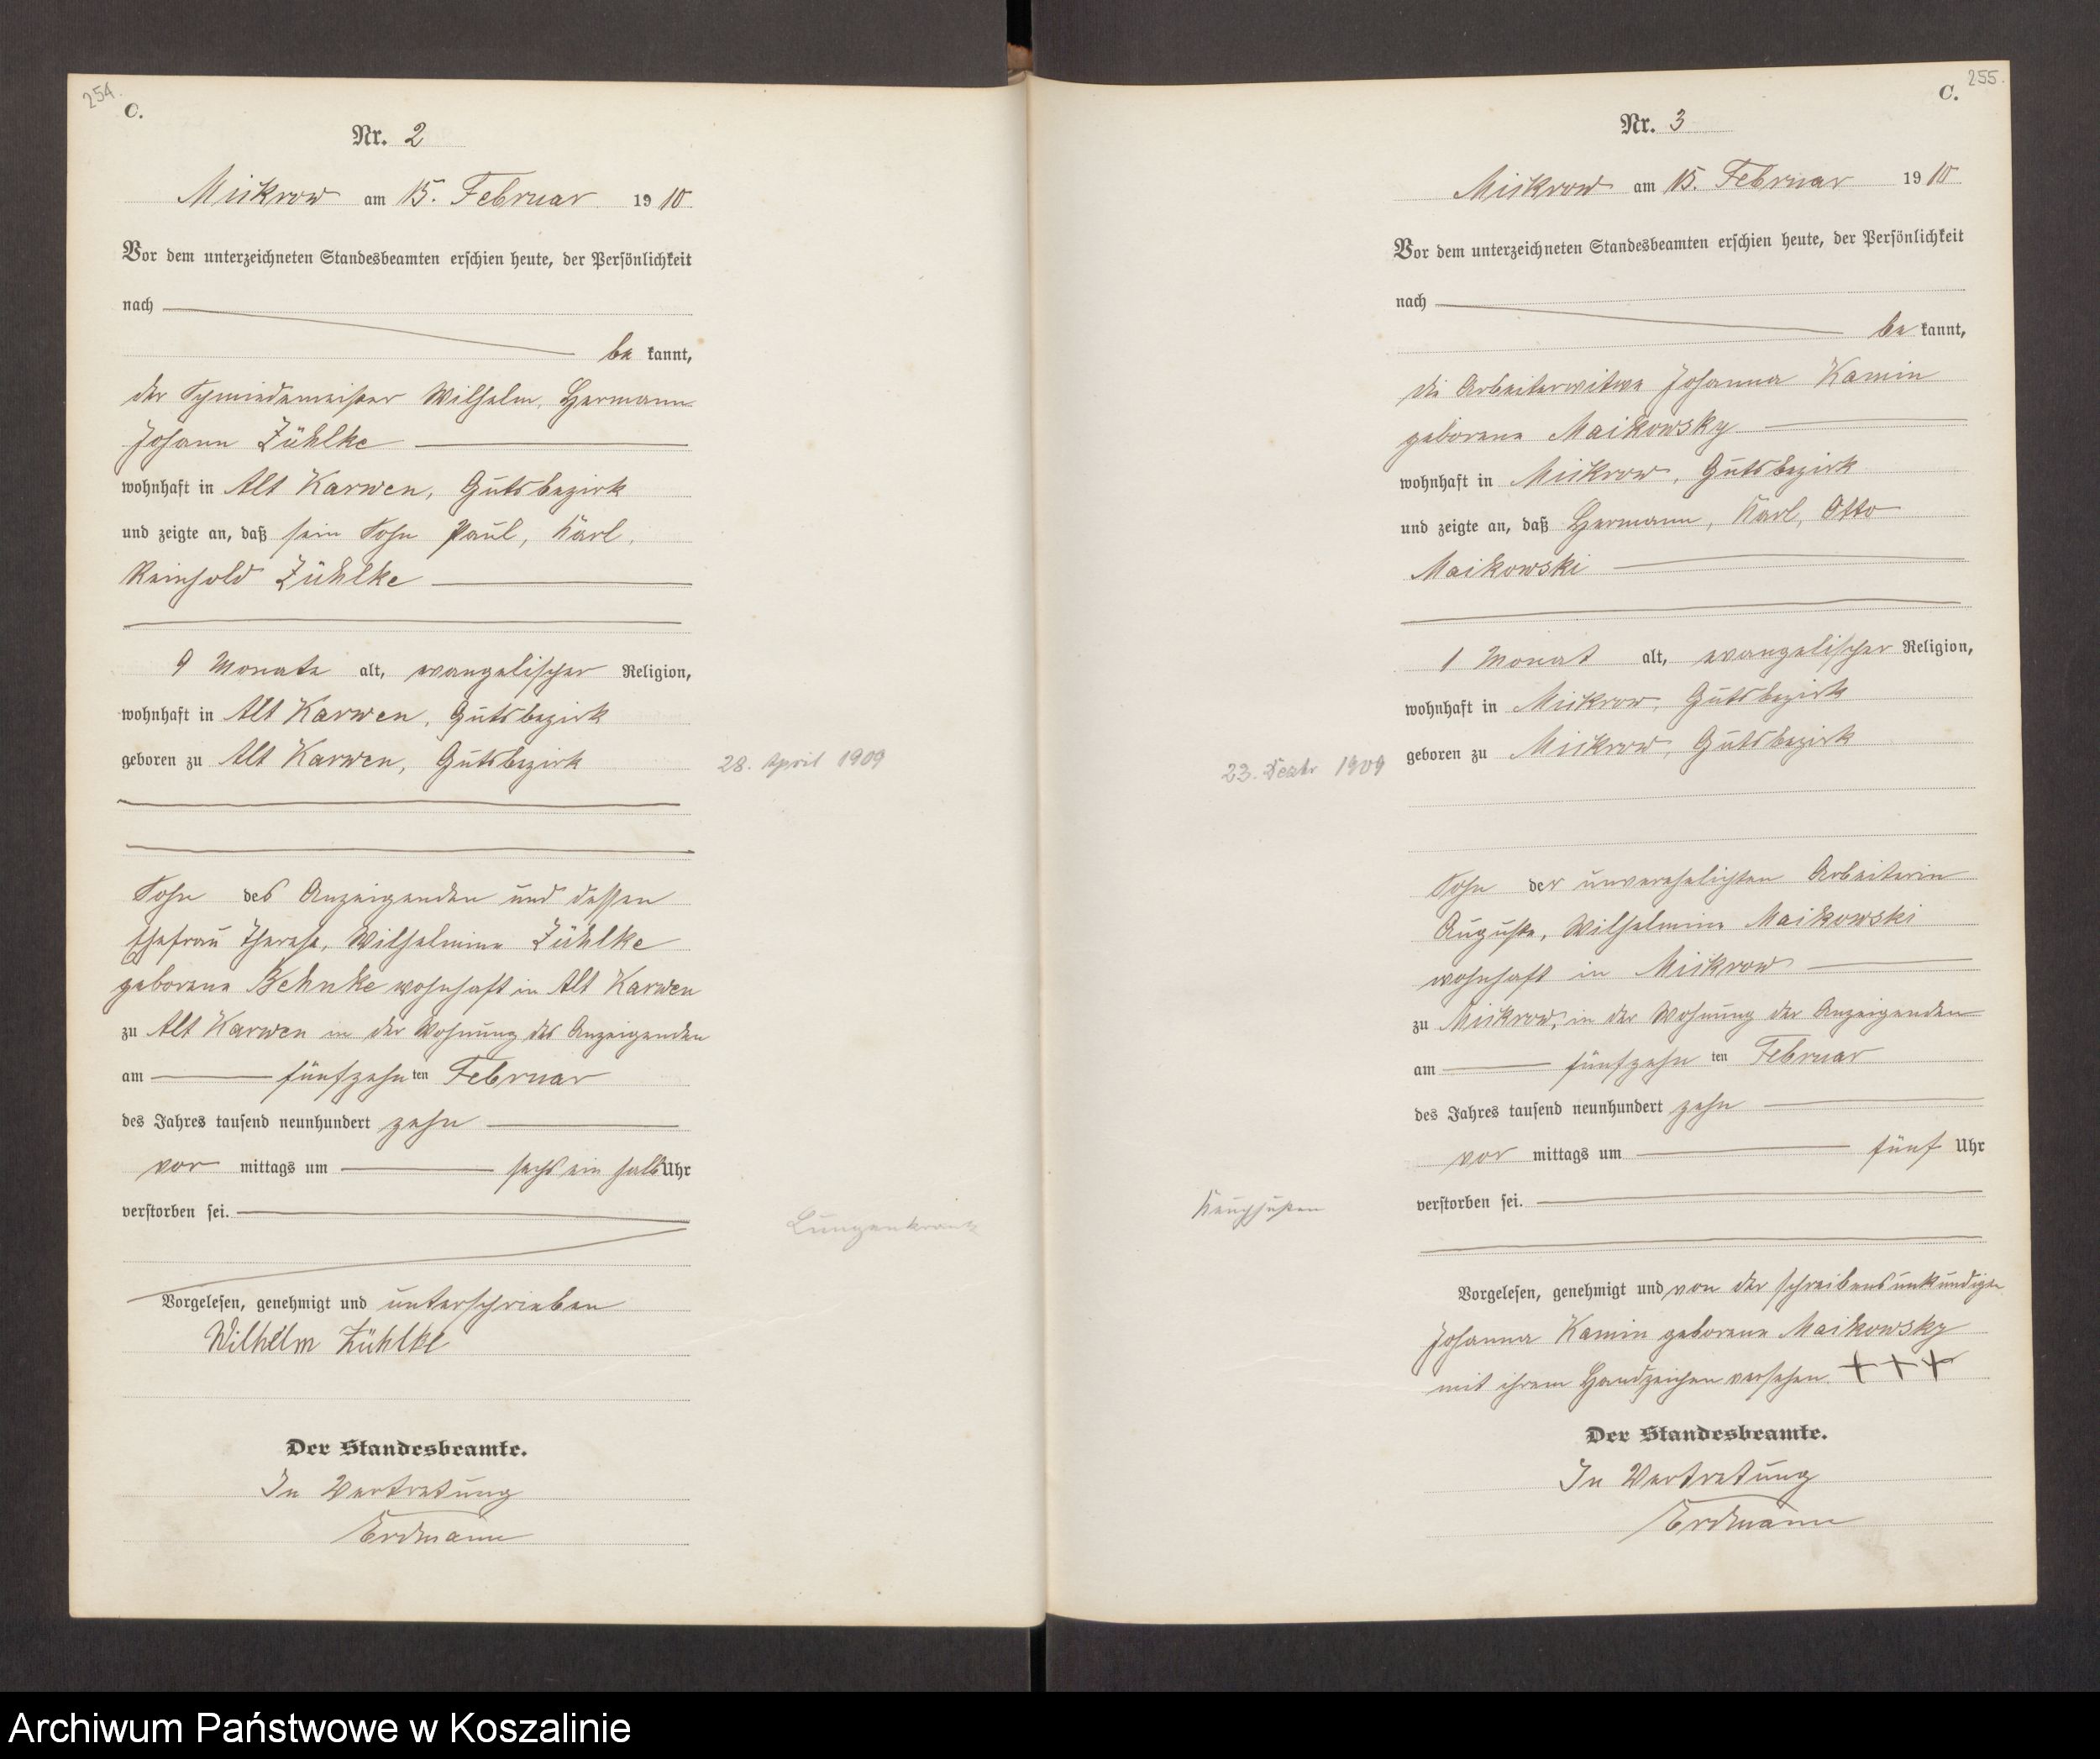 254.
C.
Nr. 2
Mickrow am 15. Februar 1910
Vor dem unterzeichneten Standesbeamten erschien heute, der Persönlichkeit
nach
be kannt,
der Schmiedemeister Wilhelm, Hermann
Johann Zühlke
wohnhaft in Alt Karwen, Gutsbezirk
und zeigte an, daß sein Sohn Paul, Karl,
Reinhold Zühlke
9 Monate alt, evangelischer Religion,
wohnhaft in Alt Karwen, Gutsbezirk
geboren zu Alt Karwen, Gutsbezirk
28. April 1909
Sohn des Anzeigenden und dessen
Ehefrau Therese, Wilhelmine Zühlke
geborene Behnke wohnhaft in Alt Karwen
zu Alt Karwen in der Wohnung des Anzeigenden
am fünfzehn ten Februar
des Jahres tausend neunhundert zehn
vor mittags um sechs ein halb Uhr
verstorben sei.
Lungenkrank
Vorgelesen, genehmigt und unterschrieben
Wilhelm Zühlke
Der Standesbeamte.
In Vertretung
Erdmann
255.
C.
Nr. 3
Mickrow am 15. Februar 1910
Vor dem unterzeichneten Standesbeamten erschien heute, der Persönlichkeit
nach
be kannt,
die Arbeiterwitwe Johanna Kamin
geborene Maikowsky
wohnhaft in Mickrow, Gutsbezirk
und zeigte an, daß Hermann, Karl, Otto
Maikowski
1 Monat alt, evangelischer Religion,
wohnhaft in Mickrow, Gutsbezirk
geboren zu Mickrow, Gutsbezirk
23. Dezbr 1909
Sohn der unverehelichten Arbeiterin
Auguste, Wilhelmine Maikowski
wohnhaft in Mickrow
zu Mickrow, in der Wohnung der Anzeigenden
am fünfzehn ten Februar
des Jahres tausend neunhundert zehn
vor mittags um fünf Uhr
verstorben sei.
Keuchhusten
Vorgelesen, genehmigt und von der schreibensunkundigen
Johanna Kamin geborene Maikowsky
mit ihrem Handzeichen versehen. + + +
Der Standesbeamte.
In Vertretung
Erdmann
Archiwum Państwowe w Koszalinie